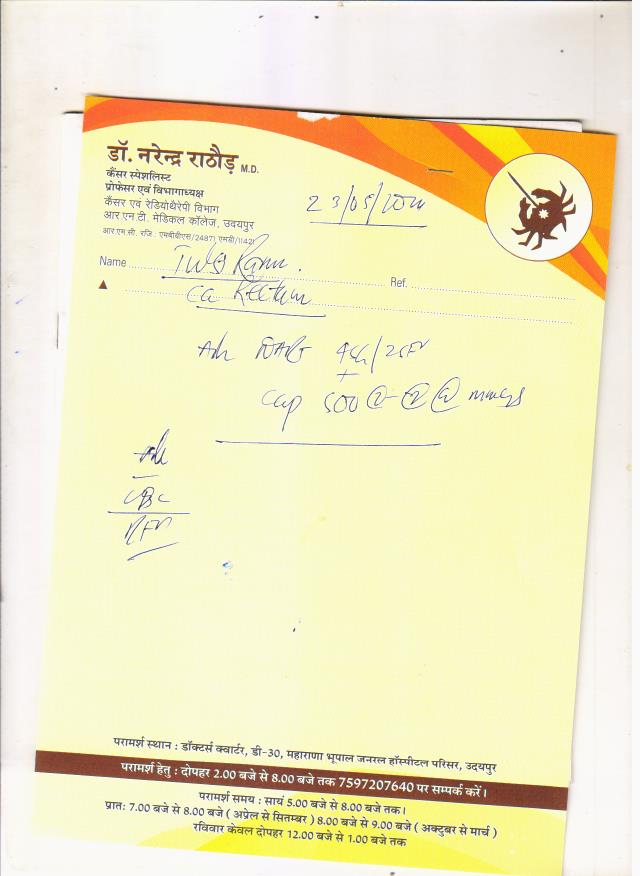 डॉ. नरेन्द्र राठौड़ M.D.
कैंसर स्पेशलिस्ट
प्रोफेसर एवं विभागाध्यक्ष
कैंसर एवं रेडियोथैरेपी विभाग
आर.एन.टी. मेडिकल कॉलेज, उदयपुर
आर.एम.सी. रजि.: एमबीबीएस/24871 एमडी/11421
23/05/
Name Ref.
Ca Rectum
Adv
+
Cap 500
Adv
CBC
RFT
परामर्श स्थान : डॉक्टर्स क्वार्टर, डी-30, महाराणा भूपाल जनरल हॉस्पीटल परिसर, उदयपुर
परामर्श हेतु : दोपहर 2.00 बजे से 8.00 बजे तक 7597207640 पर सम्पर्क करें।
परामर्श समय : सायं 5.00 बजे से 8.00 बजे तक।
प्रातः 7.00 बजे से 8.00 बजे ( अप्रेल से सितम्बर ) 8.00 बजे से 9.00 बजे ( अक्टुबर से मार्च )
रविवार केवल दोपहर 12.00 बजे से 1.00 बजे तक